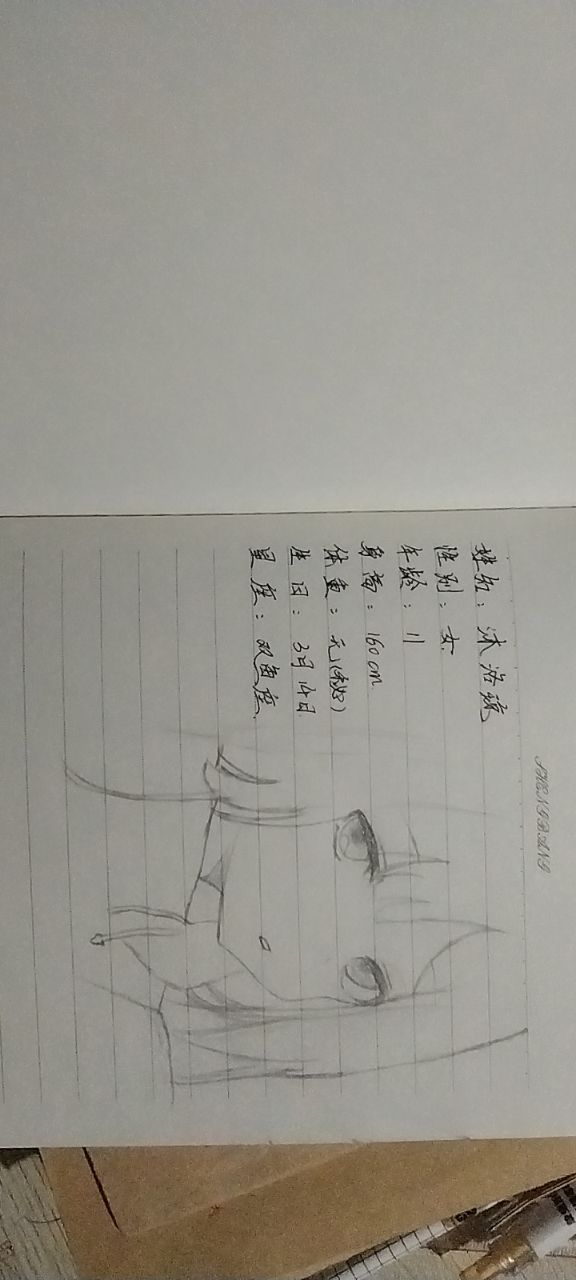 SHENGBANG
姓名：沐洛琉
性别：女
年龄：11
身高：160cm
体重：元(秘)
生日：3月14日
星座：双鱼座